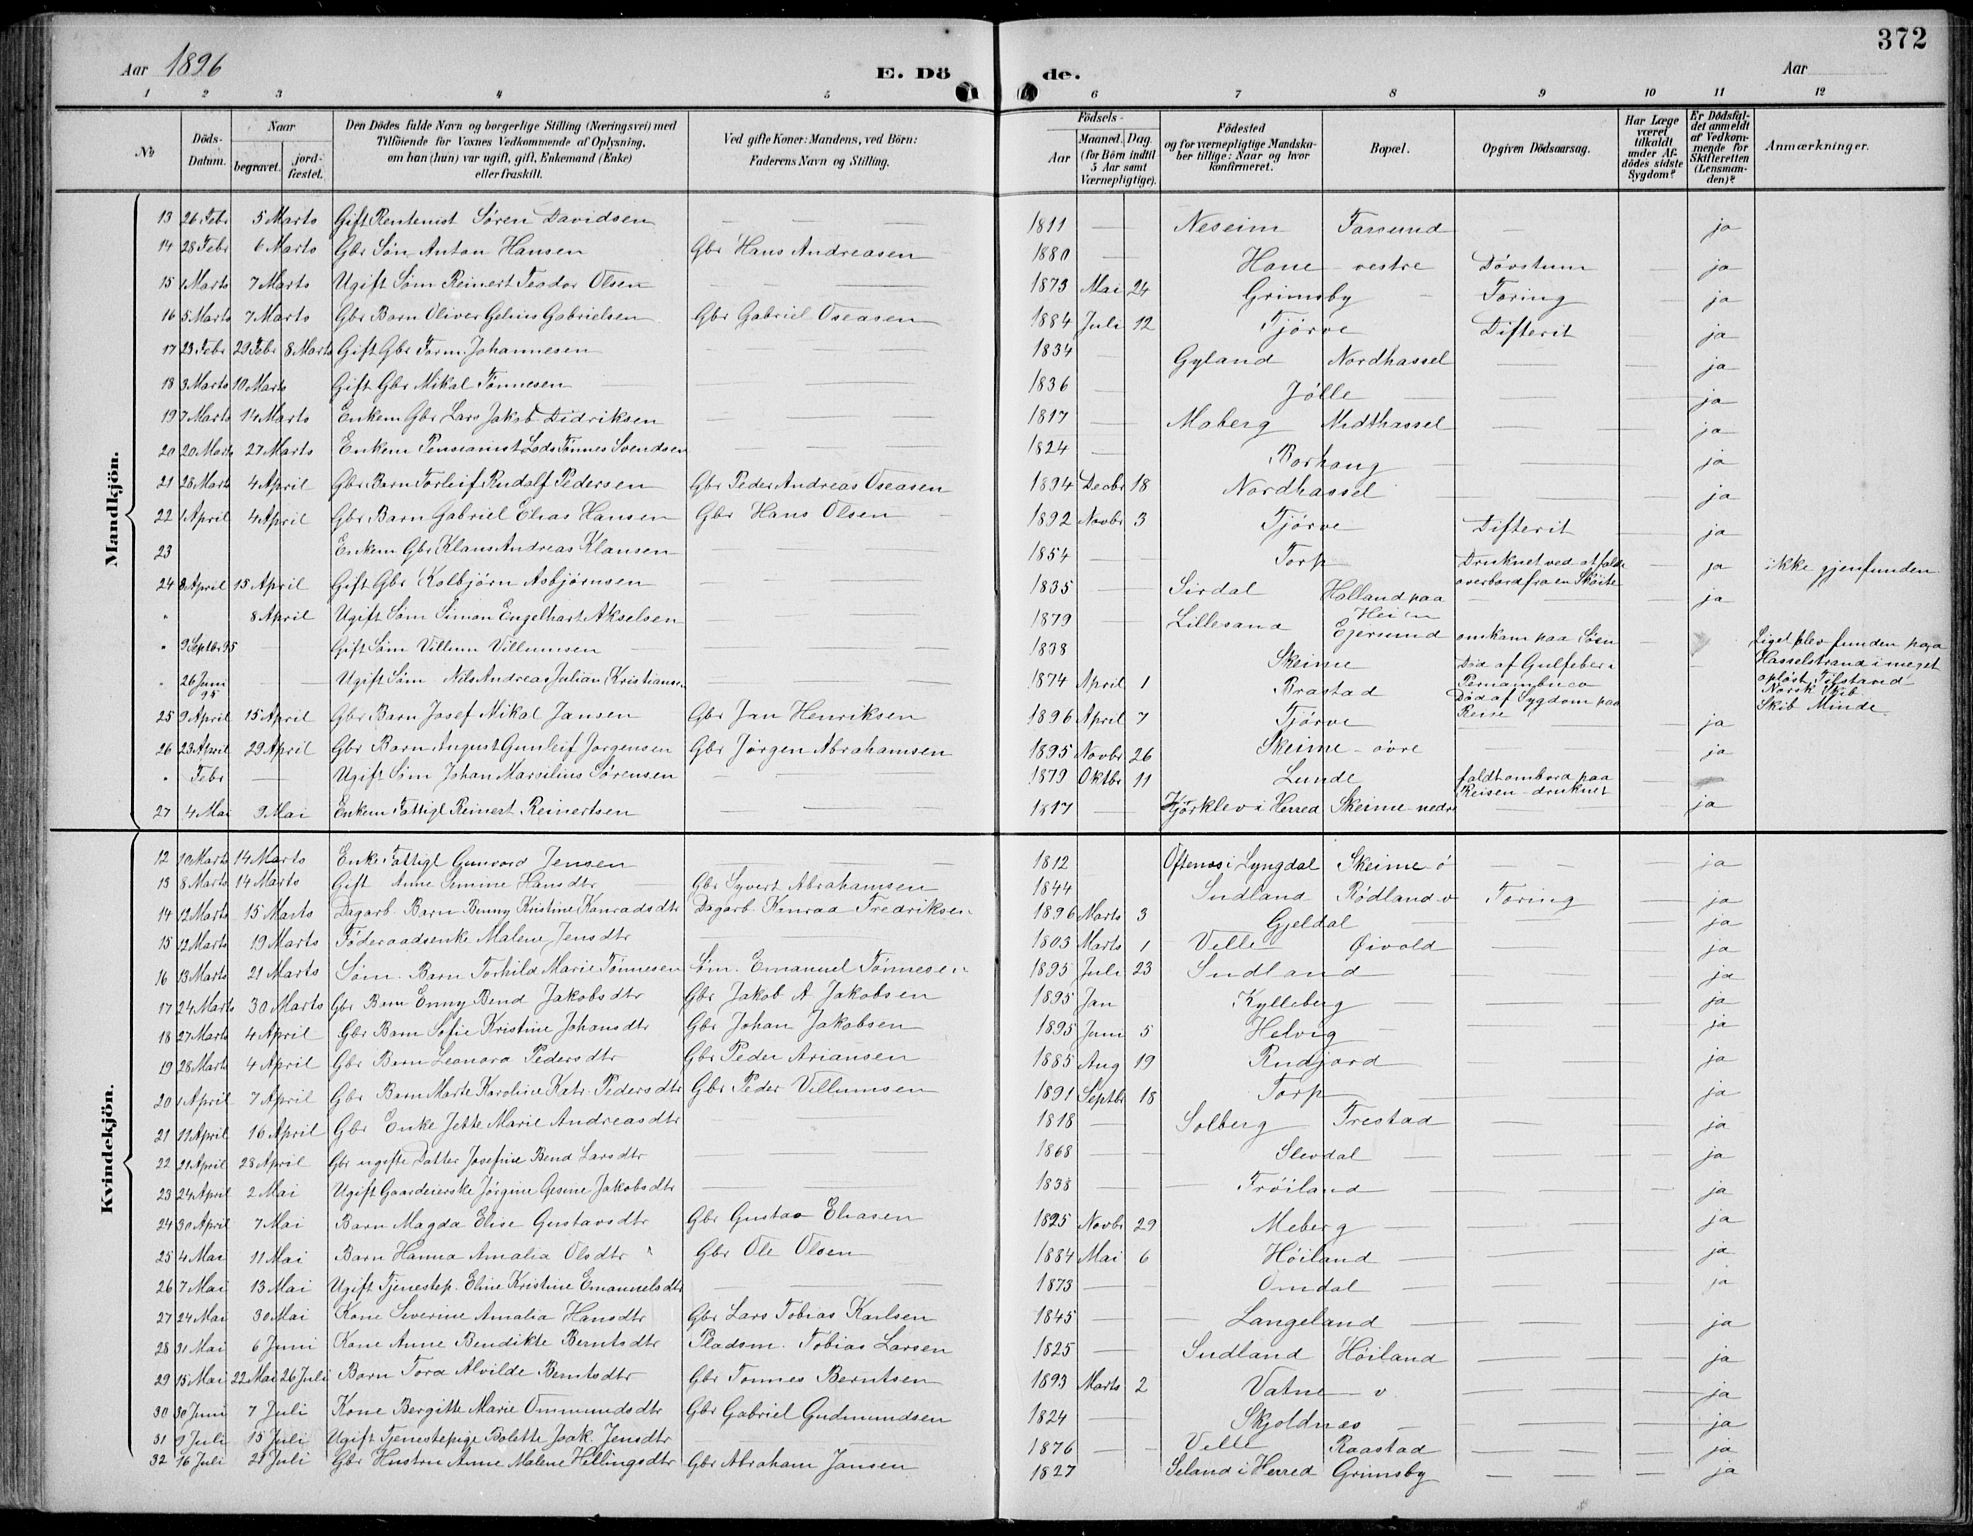 372
Aar 1896
E. Döde.
Aar
1 2 3 4 5 6 7 8 9 10 11 12
No
Döds-Datum.
Naar begravet. jordfæstet.
Den Dödes fulde Navn og borgerlige Stilling (Næringsvei) med Tilföiende for Voxnes Vedkommende af Oplysning, om han (hun) var ugift, gift, Enkemand (Enke) eller fraskilt.
Ved gifte Koner: Mandens, ved Börn: Faderens Navn og Stilling.
Födsels-
Aar Maaned. Dag. (for Börn indtil 5 Aar samt Værnepligtige).
Födested og for værnepligtige Mandskaber tillige: Naar og hvor konfirmeret.
Bopæl.
Opgiven Dödsaarsag.
Har Læge været tilkaldt under Afdödes sidste Sygdom?
Er Dödsfaldet anmeldt af Vedkommende for Skifteretten (Lensmanden)?
Anmærkninger.
Mandkjön.
13 26 Febr 5 Marts Gift Rentenist Søren Davidsen — 1811 — Neseim Farsund — — ja
14 28 Febr 6 Marts Gbr Søn Anton Hansen Gbr Hans Andreasen 1880 — Hane - vestre Døvstum — ja
15 1 Marts 7 Marts Ugift Søm Reinert Teodor Olsen — 1873 Mai 24 Grimsby - Tæring — ja
16 5 Marts 7 Marts Gbr Barn Oliver Gelius Gabrielsen Gbr Gabriel Oseasen 1884 Juli 12 Tjørve Difterit — ja
17 23 Febr 29 Febr 8 Marts Gift Gbr Torm. Johannesen — 1834 — Gyland Nordhassel — — ja
18 3 Marts 10 Marts Gift Gbr Mikal Tønnesen — 1836 — Jølle — — ja
19 7 Marts 14 Marts Enkem Gbr Lars Jakob Didriksen — 1817 — Maberg Midthassel — — ja
20 20 Marts 27 Marts Enkem Pensionist Lods Tønnes Svendsen — 1824 — Borhaug — — ja
21 28 Marts 4 April Gbr Barn Torleif Rudolf Pedersen Gbr Peder Andreas Oseasen 1894 Decbr 18 Nordhassel — — ja
22 1 April 4 April Gbr Barn Gabriel Elias Hansen Gbr Hans Olsen 1892 Novbr 3 Tjørve Difterit — ja
23 Enkem Gbr Klaus Andreas Klausen — 1854 — Torp Druknet ved at falde overbord fra en Skøite ja ikke gjenfunden
24 8 April 15 April Gift Gbr Kolbjørn Asbjørnsen — 1835 — Sirdal Holland paa Heien — — ja
" 8 April Ugift Søm Simon Engelhart Akselsen — 1879 — Lillesand Egersund omkom paa Søen
" 9 Septbr 95 — Gift Søm Villum Villumsen — 1838 Skeime Død af Gulfeber i Pernambuco — Liget blev funden paa Hasselstrand i meget opløst Tilstand
" 26 Juni 95 — Ugift Søm Nils Andreas Julian Kristians. 1874 April 1 Brastad Død af Sygdom paa Reise Norsk Skib. Skib Minde.
25 9 April 15 April Gbr Barn Josef Mikal Jansen Gbr Jan Henriksen 1896 April 7 Tjørve ja
26 23 April 29 April Gbr Barn August Gunleif Jørgensen Gbr Jørgen Abrahamsen 1895 Novbr 26 Skeime - øvre — ja
" Febr — Ugift Søm Johan Marsilius Sørensen — 1879 Oktbr 11 Lunde faldt ombord paa Reisen - druknet —
27 4 Mai 9 Mai Enkem Fattigl Reinert Reinertsen — 1817 — Kjørklev i Herred Skeime nedre — — ja
Kvindekjön.
12 10 Marts 14 Marts Enke Fattigl Gunvord Jensen — 1812 Oftenes i Lyngdal Skeime ø — — ja
13 8 Marts 14 Marts Gift Anne Semine Hansdtr — Gbr Syvert Abrahamsen 1844 Sudland Rødland v Tæring — ja
14 12 Marts 15 Marts Dagarb. Barn Benny Kristine Konradsdtr Dagarb. Konrad Fredriksen 1896 Marts 3 Gjeldal — ja
15 12 Marts 19 Marts Føderaadsenke Malene Jensdtr — 1803 Marts 1 Velle Øivold — — ja
16 13 Marts 21 Marts Søm. Barn Torhild Marie Tønnesen Søm. Emanuel Tønnesen 1895 Juli 23 Sudland — — ja
17 24 Marts 30 Marts Gbr Barn Enny Bend Jakobsdtr Gbr Jakob A Jakobsen 1895 Jan Kylleberg — ja
18 27 Marts 4 April Gbr Barn Sofie Kristine Johansdtr Gbr Johan Jakobsen 1895 Juni 5 Helvig — — ja
19 28 Marts 4 April Gbr Barn Leonora Pedersdtr Gbr Peder Ariansen 1885 Aug 19 Rudjord — — ja
20 1 April 7 April Gbr Barn Marte Karoline Katr. Pedersdtr Gbr Peder Villumsen 1891 Septbr 18 Torp — — ja
21 11 April 16 April Gbr Enke Jette Marie Andreasdtr — 1818 — Solberg Frestad — — ja
22 21 April 28 April Gbr ugifte Datter Josefine Bend Larsdtr — 1868 — Slevdal — — ja
23 24 April 2 Mai Ugift Gaardeierske Jørgine Gesine Jakobsdtr — 1838 — Frøiland — — ja
24 30 April 7 Mai Barn Magda Elise Gustavsdtr Gbr Gustav Eliasen 1895 Novbr 29 Meberg — — ja
25 4 Mai 11 Mai Barn Hanna Amalia Olsdtr Gbr Ole Olsen 1884 Mai 6 Høiland — — ja
26 7 Mai 13 Mai Ugift Tjenestep. Eline Kristine Emanuelsdtr — 1873 — Omdal — — ja
27 24 Mai 30 Mai Kone Severine Amalia Hansdtr Gbr Lars Tobias Karlsen 1845 — Langeland — — ja
28 31 Mai 6 Juni Kone Anne Bendikte Berntsdtr Pladsm. Tobias Larsen 1825 — Sudland Høiland — — ja
29 15 Mai 22 Mai 26 Juli Barn Tora Alvilde Berntsdtr Gbr Tønnes Berntsen 1893 Marts 2 Vatne - v. — — ja
30 30 Juni 7 Juli Kone Bergitte Marie Ommundsdtr Gbr Gabriel Gudmundsen 1824 — Skjoldnes — — ja
31 9 Juli 15 Juli Ugift Tjenestepige Bolette Joak. Jensdtr — 1876 — Velle Raastad — — ja
32 16 Juli 21 Juli Gbr Hustru Anne Malene Hellingsdtr Gbr Abraham Jansen 1827 Seland i Herred Grimsby — — ja